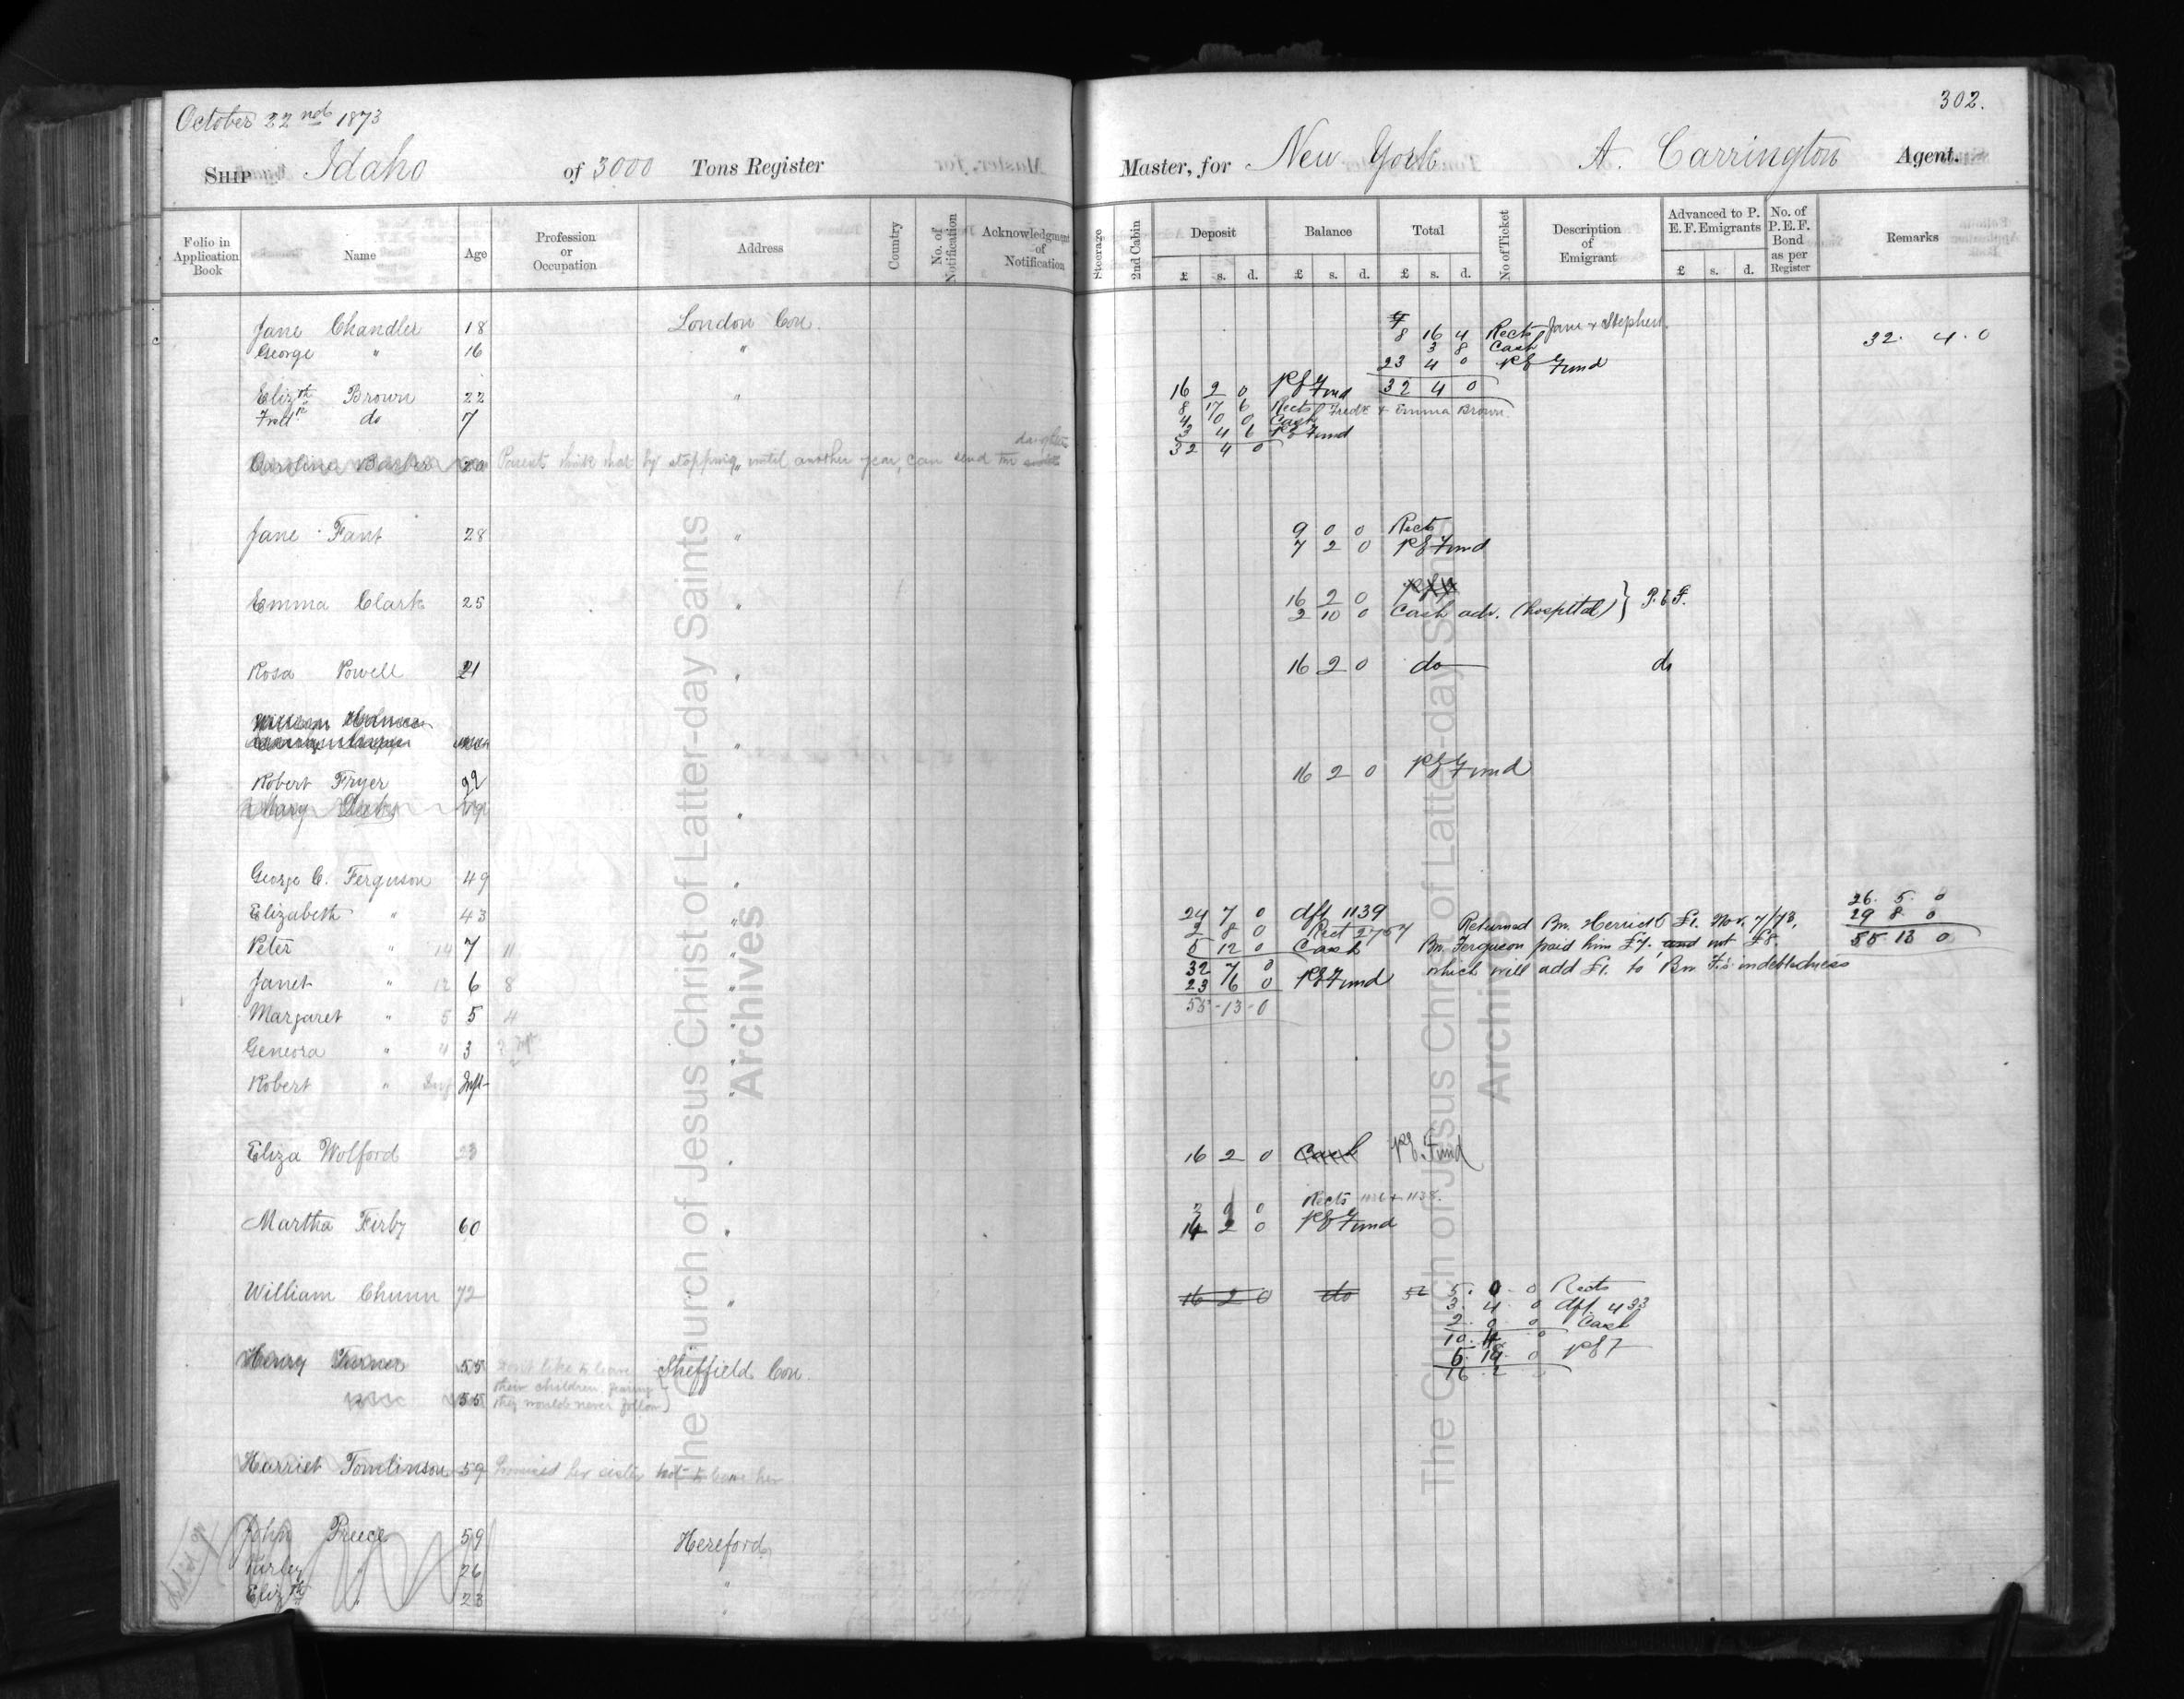 October 22nd 1873
302.
Ship Idaho of 3000 Tons Register
Master, for New York A. Carrington Agent.
Folio in Application Book
Name
Age
Profession or Occupation
Address
Country
No. of Notification
Acknowledgment of Notification
Steerage
2nd Cabin
Deposit £ s. d.
Balance £ s. d.
Total £ s. d.
No of Ticket
Description of Emigrant
Advanced to P. E. F. Emigrants £ s. d.
No. of P. E. F. Bond as per Register
Remarks
Jane Chandler 18 London Con. 8 16 4 Rects Jane & Stephen
George " 16 " 3 8 Cash 32. 4. 0
23 4 0 P E Fund
32 4 0
Elizth Brown 22 " 16 2 0 P E Fund
Fredk do 7 8 17 6 Rects Fredk & Emma Brown
4 0 0 Cash
3 4 6 P E Fund
32 4 0
Caroline Barker 20 Parents think that by stopping until another year, can send the daughter
Jane Fant 28 " 9 0 0 Rects
7 2 0 P E Fund
Emma Clark 25 " 16 2 0
2 10 0 Cash adv. (hospital) } P. E. F.
Rosa Powell 21 " 16 2 0 do do
William
"
Robert Fryer 22 16 2 0 P E Fund
Mary "
George C. Ferguson 49 "
Elizabeth " 43 " 24 7 0 dft 1139
2 8 0 Rect 2767
Peter " 14 7 11 " 5 12 0 Cash
32 7 0
Janet " 12 6 8 " 23 6 0 P E Fund
55-13-0
Returned Bro. Herrick £1. Nov. 7/73,
Bro. Ferguson paid him £7. and not £8.
which will add £1. to Bro F's indebtedness
26. 5. 0
29 8 0
55 13 0
Margaret " 5 5 4 "
Geneora " 4 3 "
Robert " Inf Inft "
Eliza Wolford 23 " 16 2 0 Cash P E. Fund
Rects 1126 & 1138.
Martha Firby 60 " 14 2 0 P E Fund
William Chunn 72 " 16 2 0 do 5. 0. 0 Rects
3. 4. 0 dft 433
2. 0. 0 Cash
10. 4. 0
P E F
16 2
Henry Turner 55 Don't like to leave Sheffield Con.
their children, fearing
55 they would never follow)
Harriet Tomlinson 59 Promised her sister not to leave her
John Preece 59 Hereford
26 "
Elizth " 23 "
The Church of Jesus Christ of Latter-day Saints
Archives
The Church of Jesus Christ of Latter-day Saints
Archives